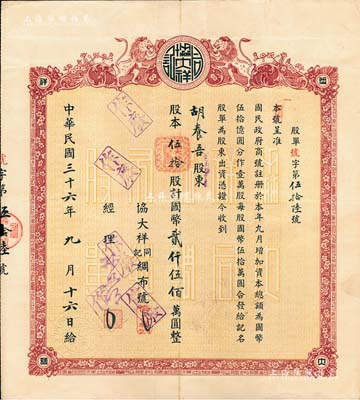 協大祥
祥
協
股單 號 字第伍拾陸號
本號呈准
國民政府商號註册於本年九月增加資本總額為國幣
伍拾億圓分作壹萬股每股國幣伍拾萬圓合發給記名
股單為股東出資憑證今收到
胡春吾股東
股本 伍拾股計國幣貳仟伍佰萬圓整
協大祥同記綢布號
經理
中華民國三十六年 九 月 十六日給
號 字第 伍拾陸 號